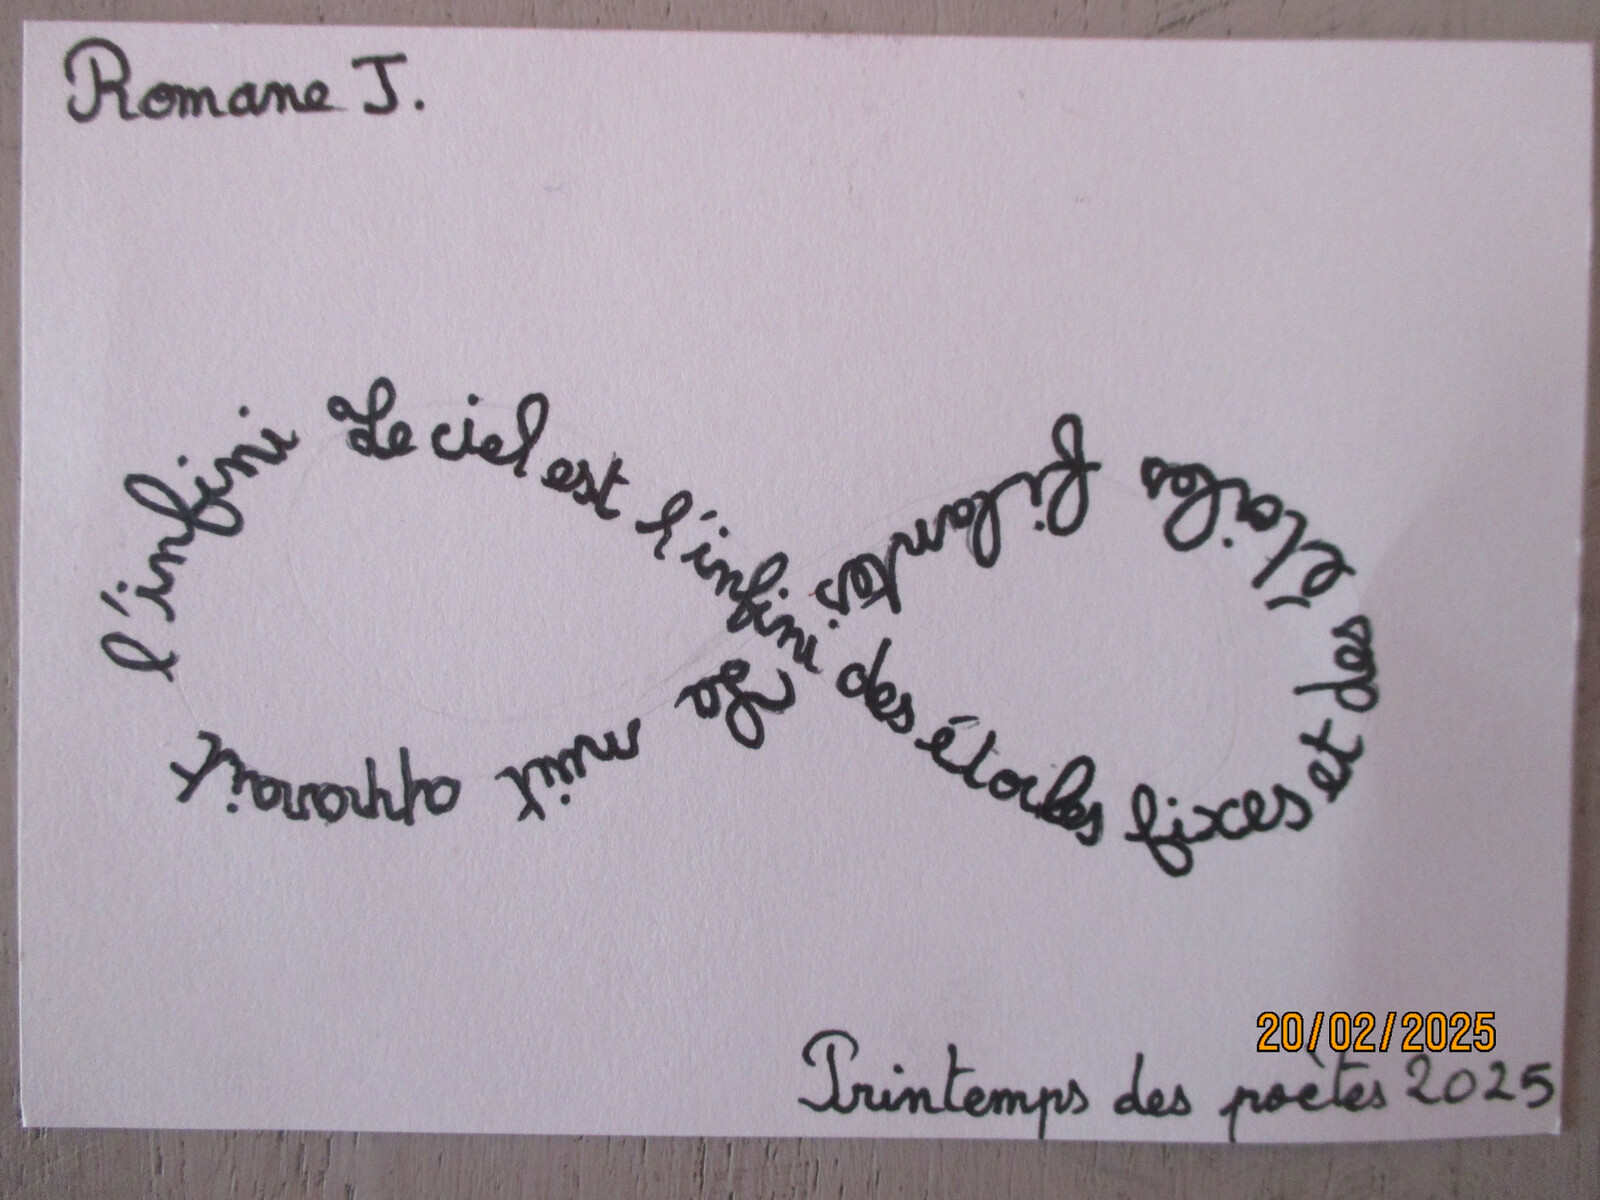 Romane J.
Le ciel est l'infini des étoiles fixes et des étoiles filantes La nuit apparait l'infini
20/02/2025
Printemps des poètes 2025